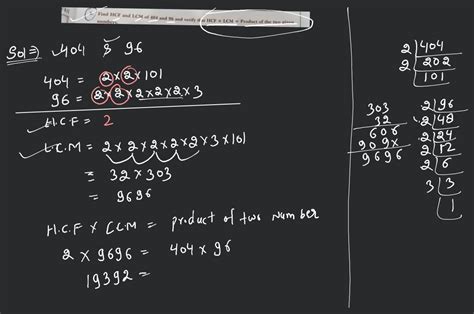 Find HCF and LCM of 404 and 96 and verify that HCF × LCM = Product of the two given numbers.
Sol⇒ 404 & 96
404 = 2×2×101
96 = 2×2×2×2×2×3
H.C.F = 2
L.C.M = 2×2×2×2×2×3×101
= 32×303
= 9696
H.C.F × LCM = product of two Number
2 × 9696 = 404 × 96
19392 =
303
32
606
909×
9696
2 404
2 202
101
2 96
2 48
2 24
2 12
2 6
3 3
1